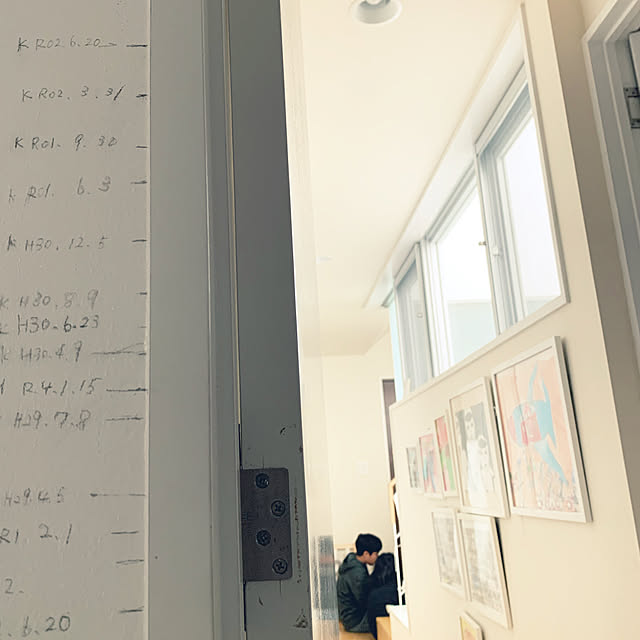 K R02.6.20
K R02.3.31
K R01.9.30
K R01.6.3
K H30.12.5
K H30.8.9
K H30.6.23
K H30.4.9
R4.1.15
H29.7.8
H29.4.5
R1.2.1
2.
.6.20